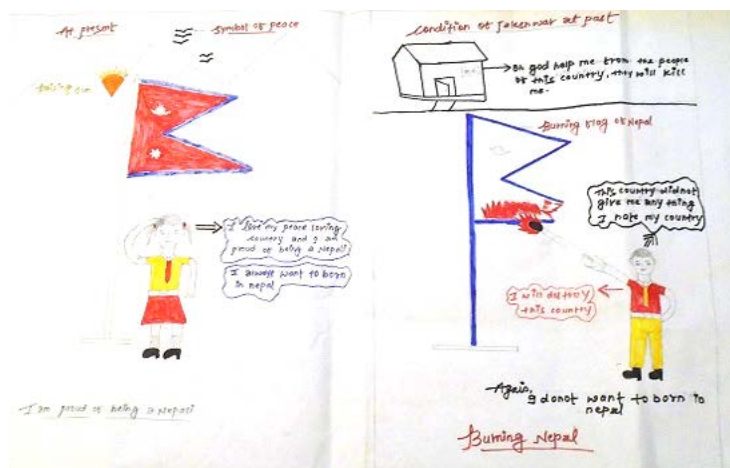 At present
symbol of peace
rising sun
I love my peace loving
country and I am
proud of being a Nepali
I always want to born
in nepal
I am proud of being a Nepali
Condition of Jaleshwar at past
Oh god help me from the people
of this country, they will kill
me.
Burning flag of Nepal
This country did not
give me any thing
I hate my country
I will destroy
this country
Again,
I donot want to born in
nepal
Burning Nepal